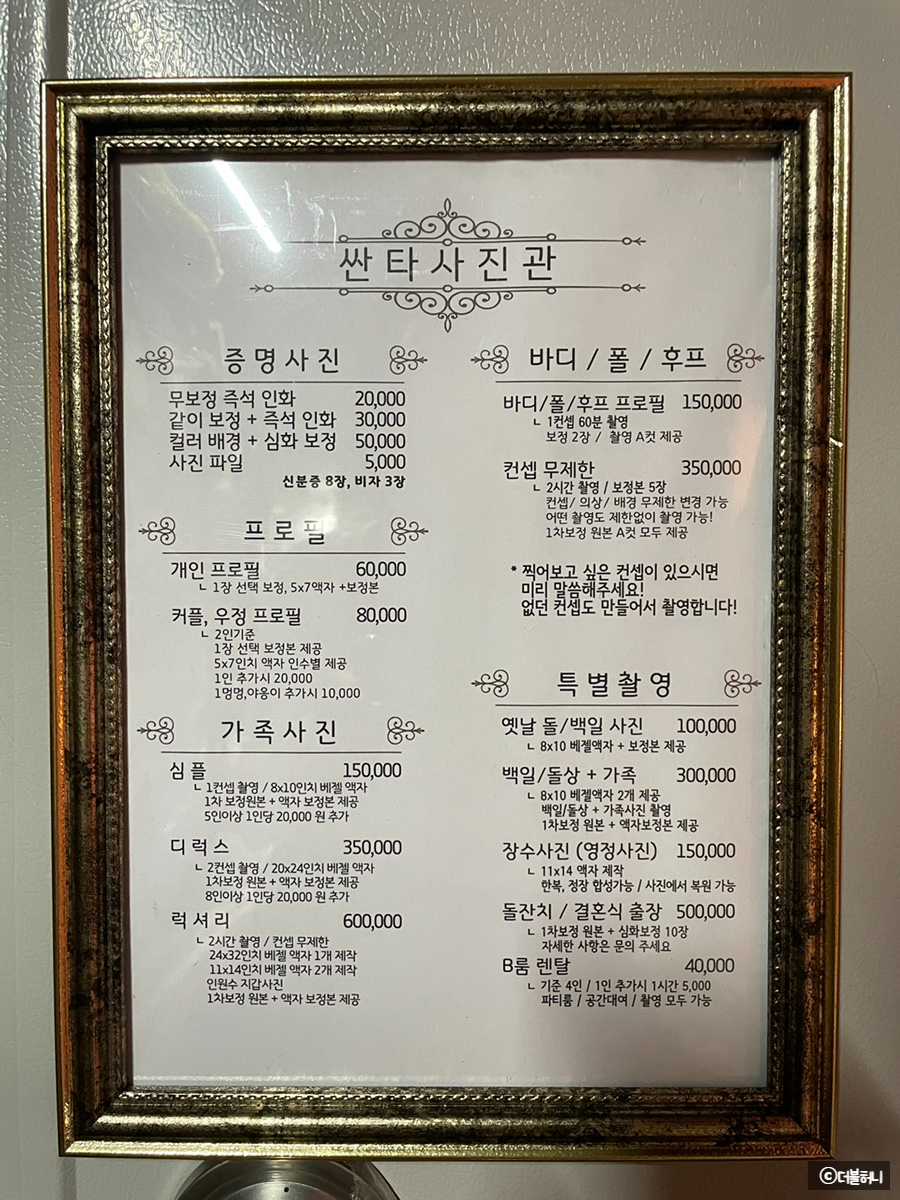 싼타사진관
증명사진
무보정 즉석 인화 20,000
같이 보정 + 즉석 인화 30,000
컬러 배경 + 심화 보정 50,000
사진 파일 5,000
신분증 8장, 비자 3장
프로필
개인 프로필 60,000
ㄴ 1장 선택 보정, 5x7액자 +보정본
커플, 우정 프로필 80,000
ㄴ 2인기준
1장 선택 보정본 제공
5x7인치 액자 인수별 제공
1인 추가시 20,000
1멍멍,야옹이 추가시 10,000
가족사진
심플 150,000
ㄴ 1컨셉 촬영 / 8x10인치 베젤 액자
1차 보정원본 + 액자 보정본 제공
5인이상 1인당 20,000 원 추가
디럭스 350,000
ㄴ 2컨셉 촬영 / 20x24인치 베젤 액자
1차보정 원본 + 액자 보정본 제공
8인이상 1인당 20,000 원 추가
럭셔리 600,000
ㄴ 2시간 촬영 / 컨셉 무제한
24x32인치 베젤 액자 1개 제작
11x14인치 베젤 액자 2개 제작
인원수 지갑사진
1차보정 원본 + 액자 보정본 제공
바디 / 폴 / 후프
바디/폴/후프 프로필 150,000
ㄴ 1컨셉 60분 촬영
보정 2장 / 촬영 A컷 제공
컨셉 무제한 350,000
ㄴ 2시간 촬영 / 보정본 5장
컨셉/ 의상/ 배경 무제한 변경 가능
어떤 촬영도 제한없이 촬영 가능!
1차보정 원본 A컷 모두 제공
* 찍어보고 싶은 컨셉이 있으시면
미리 말씀해주세요!
없던 컨셉도 만들어서 촬영합니다!
특별촬영
옛날 돌/백일 사진 100,000
ㄴ 8x10 베젤액자 + 보정본 제공
백일/돌상 + 가족 300,000
ㄴ 8x10 베젤액자 2개 제공
백일/돌상 + 가족사진 촬영
1차보정 원본 + 액자보정본 제공
장수사진 (영정사진) 150,000
ㄴ 11x14 액자 제작
한복, 정장 합성가능 / 사진에서 복원 가능
돌잔치 / 결혼식 출장 500,000
ㄴ 1차보정 원본 + 심화보정 10장
자세한 사항은 문의 주세요
B룸 렌탈 40,000
ㄴ 기준 4인 / 1인 추가시 1시간 5,000
파티룸 / 공간대여 / 촬영 모두 가능
©더블허니